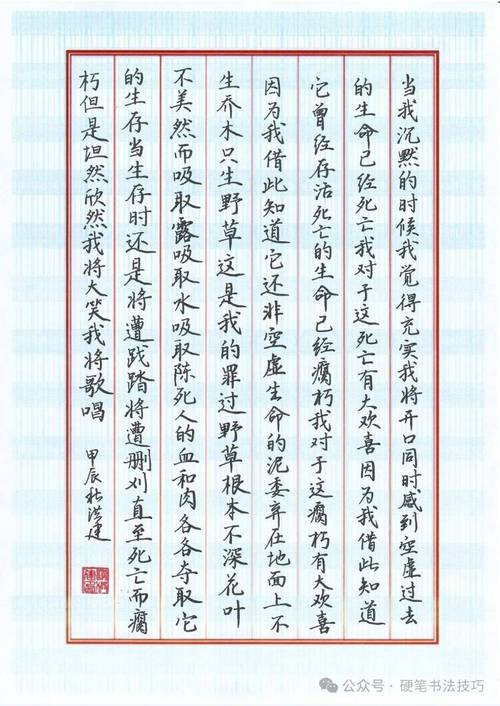 当我沉默的时候我觉得充实我将开口同时感到空虚过去
的生命已经死亡我对于这死亡有大欢喜因为我借此知道
它曾经存活死亡的生命已经腐朽我对于这腐朽有大欢喜
因为我借此知道它还非空虚生命的泥委弃在地面上不
生乔木只生野草这是我的罪过野草根本不深花叶
不美然而吸取露吸取水吸取陈死人的血和肉各各夺取它
的生存当生存时还是将遭践踏将遭删刈直至死亡而腐
朽但是坦然欣然我将大笑我将歌唱
甲辰秋洪建
公众号·硬笔书法技巧